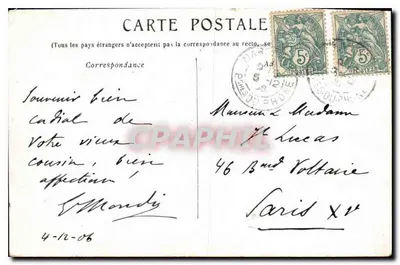 CARTE POSTALE
(Tous les pays étrangers n'acceptent pas la correspondance au recto, se
Correspondance
Souvenir bien
cordial de
Votre vieux
cousin, bien
affectionné
4-12-06
Monsieur & Madame
Lucas
46 Bard Voltaire
Paris XV
5
5